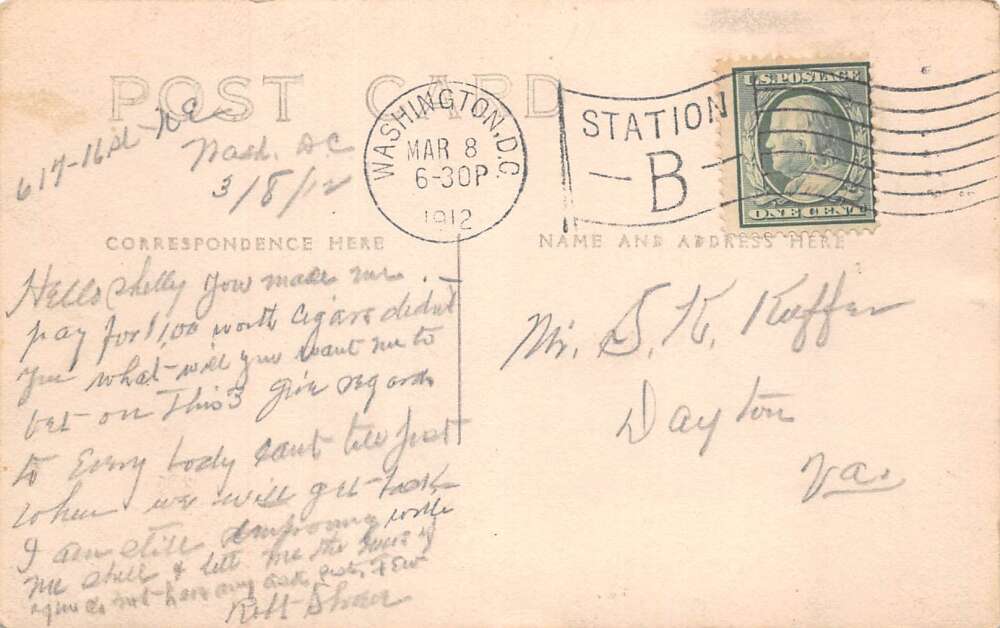 POST CARD
617-16 St-N.E.
Wash. DC
3/8/12
WASHINGTON, D.C.
MAR 8
6-30P
1912
STATION
B
U.S. POSTAGE
ONE CENT
CORRESPONDENCE HERE
NAME AND ADDRESS HERE
Hello Shelly you made me
pay for $1,00 worth cigars didn't
you what will you want me to
bet on This? give regards
to Every body cant tell just
when we will get back
I am still improving write
me Shell & tell me the news if
you do not have any ask
Robt Shaver
Mr. S. K. Kieffer
Dayton
Va.